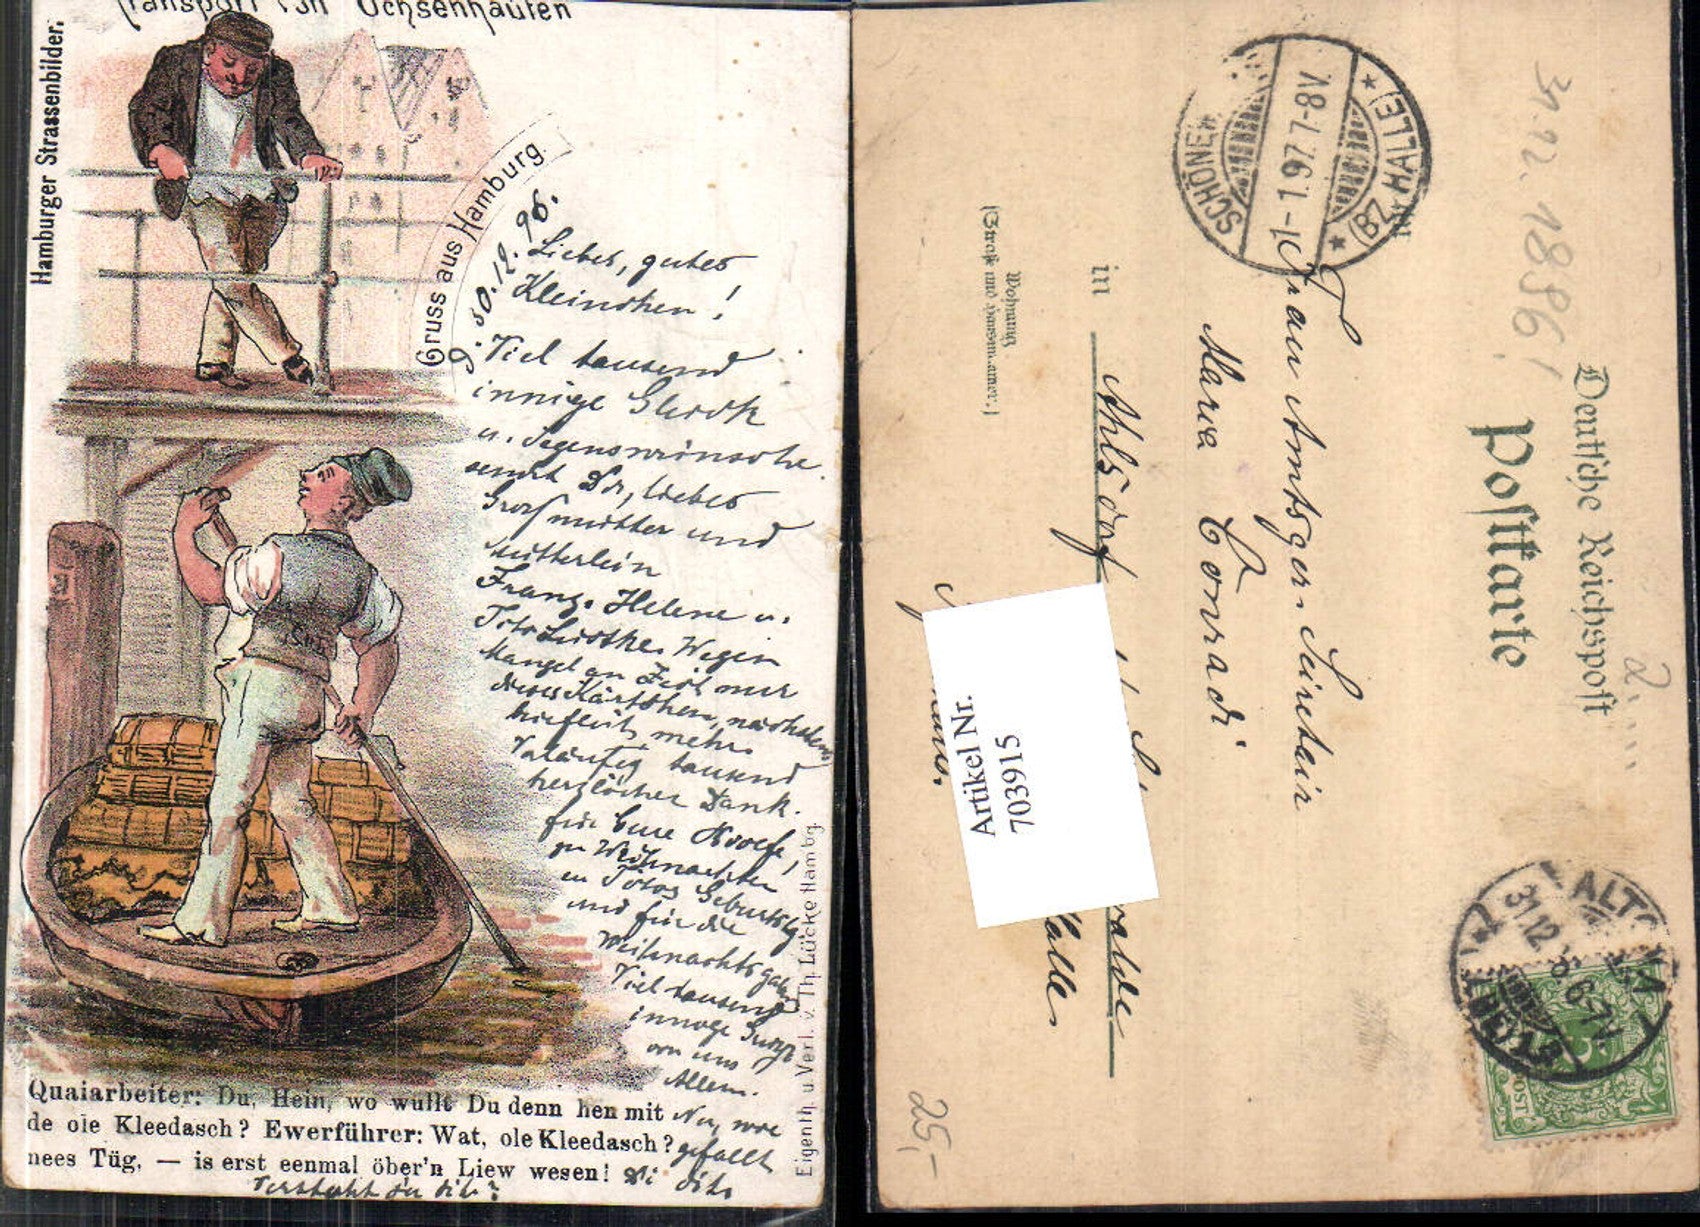 Transport von Ochsenhäuten
Hamburger Strassenbilder.
Gruss aus Hamburg.
30.12.96.
Liebes, gutes
Kleinchen!
Viel tausend
innige Glück
u. Segenswünsche
sendt Dir, liebes
Großmutter und
Mütterlein
Franz, Helene u.
Toto Wegen
Mangel an Zeit nur
dieses Kärtchen, nächstens
brieflich mehr.
Vorläufig tausend
herzlichen Dank.
für Eure
zu Weihnachten
zu Totos Geburtstg
und für die
Weihnachtsgaben
Viel tausend
innige Grüße
von uns
Allen.
Quaiarbeiter: Du, Hein, wo wullt Du denn hen mit
de ole Kleedasch? Ewerführer: Wat, ole Kleedasch?
nees Tüg, — is erst eenmal öber'n Liew wesen!
Na, wie
gefällt
Di dits
Verstehst du dit?
Eigenth. u Verl. v. Th. Lücke Hambg.
Deutsche Reichspost
Postkarte
31.12.1896!
2
Frau Amtsger. Sekretair
Maria Conradi
in
Ahlsdorf
Halle
Wohnung
(Straße und Hausnummer)
SCHÖNEW
(BZ. HALLE)
1.1.97. 7-8V.
ALTONA
31.12. 6-7N
25,-
Artikel Nr.
703915